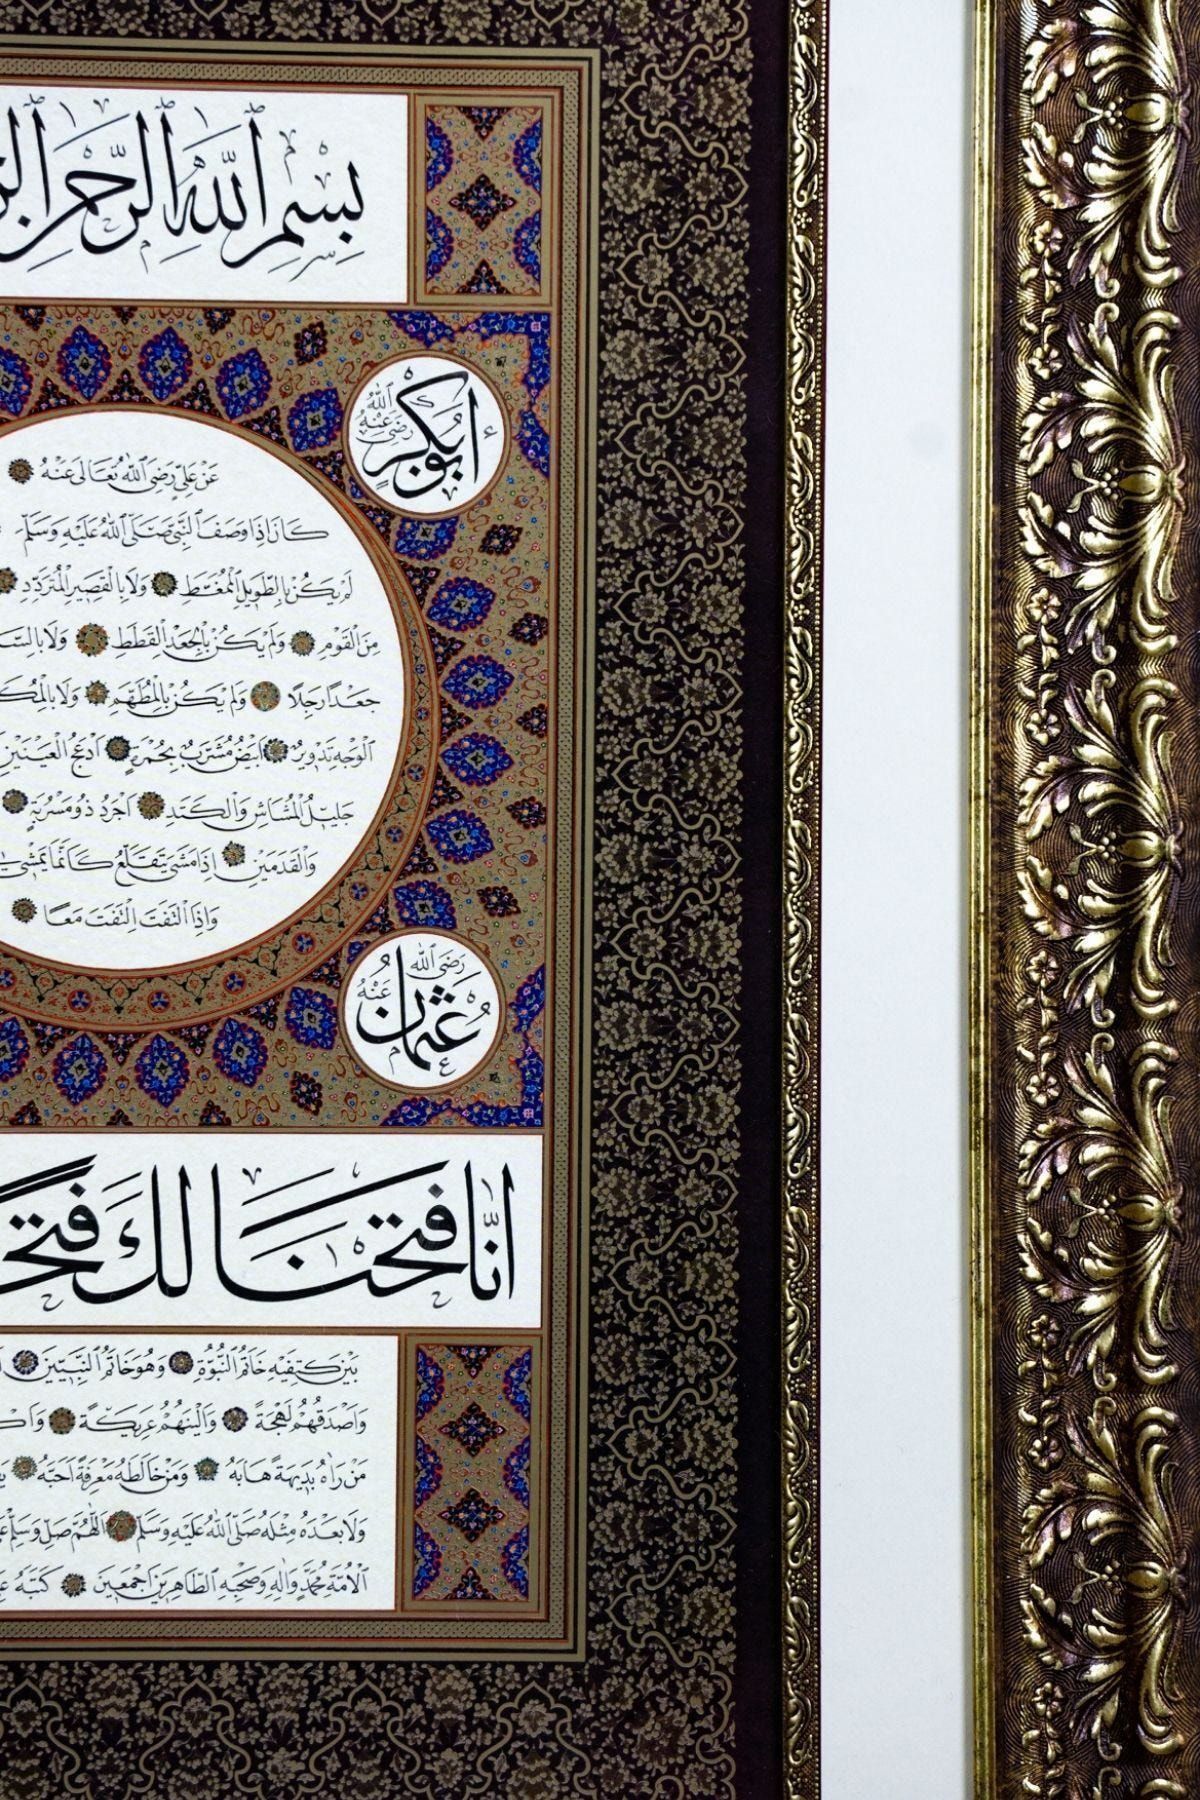 بِسْمِ ٱللّٰهِ ٱلرَّحْمٰنِ
ابُوبَكْرٍ رَضِىَ ٱللّٰهُ عَنْهُ
عَنْ عَلِىٍّ رَضِىَ ٱللّٰهُ تَعَالٰى عَنْهُ
كَانَ اِذَا وَصَفَ ٱلنَّبِىَّ صَلَّى ٱللّٰهُ عَلَيْهِ وَسَلَّمَ
لَمْ يَكُنْ بِالطَّوِيلِ ٱلْمُمَّغِطِ وَلَا بِالْقَصِيرِ ٱلْمُتَرَدِّدِ
مِنَ ٱلْقَوْمِ وَلَمْ يَكُنْ بِالْجَعْدِ ٱلْقَطَطِ وَلَا
جَعْدًا رَجِلًا وَلَمْ يَكُنْ بِالْمُطَهَّمِ وَلَا
ٱلْوَجْهِ تَدْوِيرٌ اَبْيَضُ مُشْرَبٌ بِحُمْرَةٍ اَدْعَجُ ٱلْعَيْنَيْنِ
جَلِيلُ ٱلْمُشَاشِ وَٱلْكَتَدِ اَجْرَدُ ذُو مَسْرُبَةٍ
وَٱلْقَدَمَيْنِ اِذَا مَشٰى يَتَقَلَّعُ كَاَنَّمَا يَمْشِى
وَاِذَا ٱلْتَفَتَ اِلْتَفَتَ مَعًا
عُثْمَان رَضِىَ ٱللّٰهُ عَنْهُ
اِنَّا فَتَحْنَا لَكَ
بَيْنَ كَتِفَيْهِ خَاتَمُ ٱلنُّبُوَّةِ وَهُوَ خَاتَمُ ٱلنَّبِيِّينَ
وَاَصْدَقُهُمْ لَهْجَةً وَاَلْيَنُهُمْ عَرِيكَةً
مَنْ رَاٰهُ بَدِيهَةً هَابَهُ وَمَنْ خَالَطَهُ مَعْرِفَةً اَحَبَّهُ
وَلَا بَعْدَهُ مِثْلَهُ صَلَّى ٱللّٰهُ عَلَيْهِ وَسَلَّمَ اَللّٰهُمَّ صَلِّ وَسَلِّمْ
ٱلْاُمَّةِ مُحَمَّدٍ وَاٰلِهِ وَصَحْبِهِ ٱلطَّاهِرِينَ اَجْمَعِينَ كَتَبَهُ